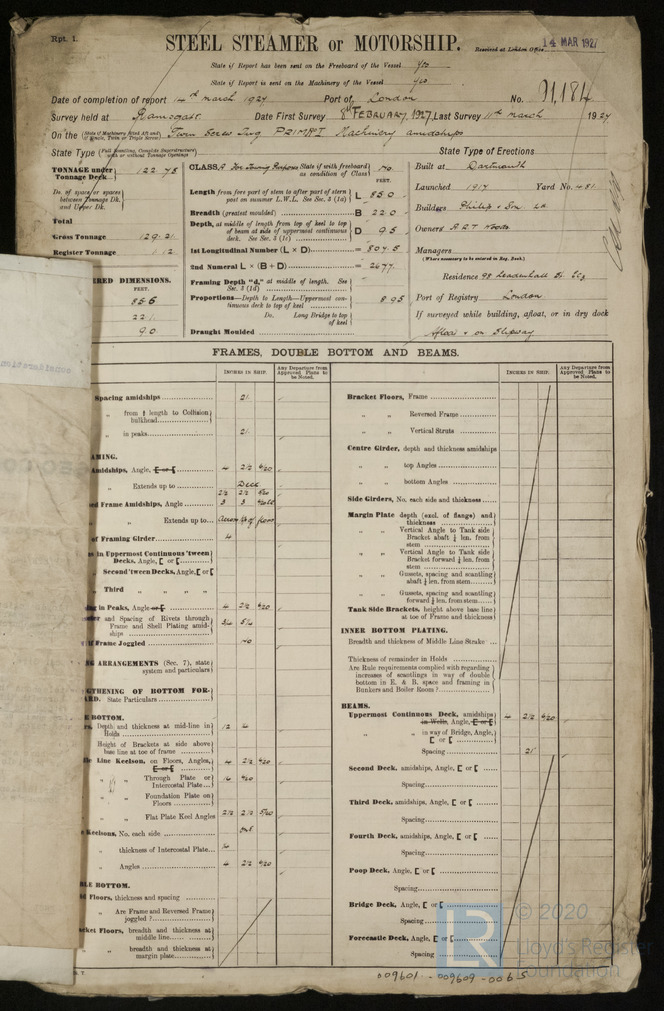 Rpt. 1.
STEEL STEAMER or MOTORSHIP.
Received at London Office 14 MAR 1927
State if Report has been sent on the Freeboard of the Vessel yes
State if Report is sent on the Machinery of the Vessel yes
Date of completion of report 14th march 1927 Port of London No. 91,184
Survey held at Ramsgate Date First Survey 8th FEBRUARY, 1927 Last Survey 11th march 1927
On the (State if Machinery fitted Aft and if Single, Twin or Triple Screw) Twin Screw Tug Machinery amidships
State Type (Full Scantling, Complete Superstructure with or without Tonnage Openings)
State Type of Erections
TONNAGE under Tonnage Deck 122.78
Do. of space or spaces between Tonnage Dk. and Upper Dk.
Total
Gross Tonnage 129.21
Register Tonnage 1.12
ERED DIMENSIONS.
FEET.
85.6
22.1
9.0
CLASS A For Towing Purposes State if with freeboard as condition of Class no
FEET.
Length from fore part of stem to after part of stern post on summer L.W.L. See Sec. 3 (1a) L 85.0
Breadth (greatest moulded) B 22.0
Depth, at middle of length from top of keel to top of beam at side of uppermost continuous deck. See Sec. 3 (1c) D 9.5
1st Longitudinal Number (L × D) = 807.5
2nd Numeral L × (B + D) = 2677
Framing Depth "d," at middle of length. See Sec. 3 (1d)
Proportions—Depth to Length—Uppermost continuous deck to top of keel 8.95
Do. Long Bridge to top of keel
Draught Moulded
Built at Dartmouth
Launched 1917 Yard No. 481
Builders Philip & Son Ld.
Owners
Managers
(Where necessary to be entered in Reg. Book.)
Residence 98 Leadenhall St. EC3
Port of Registry London
If surveyed while building, afloat, or in dry dock
Afloat & on Slipway
FRAMES, DOUBLE BOTTOM AND BEAMS.
INCHES IN SHIP.
Any Departure from Approved Plans to be Noted.
INCHES IN SHIP.
Any Departure from Approved Plans to be Noted.
Spacing amidships 21
" from ⅕ length to Collision bulkhead
" in peaks 21
AMING.
Amidships, Angle, [ or [ 4 2½ 6/20
Extends up to Deck
2½ 2½ 5/20
ed Frame Amidships, Angle 3 3
" Extends up to
of Framing Girder 4
es in Uppermost Continuous 'tween Decks, Angle, [ or [
Second 'tween Decks, Angle, [ or [
Third " " " "
ing in Peaks, Angle or [ 4 2½ 6/20
eter and Spacing of Rivets through Frame and Shell Plating amidships ¾ 5¼
if Frame Joggled no
NG ARRANGEMENTS (Sec. 7), state system and particulars
GTHENING OF BOTTOM FOR-
RD. State Particulars
E BOTTOM.
rs, Depth and thickness at mid-line in Holds 12
Height of Brackets at side above base line at toe of frame
le Line Keelson, on Floors, Angles, [ or [ 4 2½ 6/20
" " Through Plate or Intercostal Plate
" " Foundation Plate on Floors
" " Flat Plate Keel Angles 2½ 2½ 5/20
Keelsons, No. each side one
" thickness of Intercostal Plate
" Angles 4 2½ 6/20
BLE BOTTOM.
d Floors, thickness and spacing
" Are Frame and Reversed Frame joggled?
cket Floors, breadth and thickness at middle line
" breadth and thickness at margin plate
Bracket Floors, Frame
" " Reversed Frame
" " Vertical Struts
Centre Girder, depth and thickness amidships
" " top Angles
" " bottom Angles
Side Girders, No. each side and thickness
Margin Plate depth (excl. of flange) and thickness
" " Vertical Angle to Tank side Bracket abaft ¼ len. from stem
" " Vertical Angle to Tank side Bracket forward ¼ len. from stem
" " Gussets, spacing and scantling abaft ¼ len. from stem
" " Gussets, spacing and scantling forward ¼ len. from stem
Tank Side Brackets, height above base line at toe of Frame and thickness
INNER BOTTOM PLATING.
Breadth and thickness of Middle Line Strake
Thickness of remainder in Holds
Are Rule requirements complied with regarding increases of scantlings in way of double bottom in E. & B. space and framing in Bunkers and Boiler Room?
BEAMS.
Uppermost Continuous Deck, amidships in Wells, Angle, [ or [ 4 2½ 6/20
" " in way of Bridge, Angle, [ or [
Spacing 21
Second Deck, amidships, Angle, [ or [
Spacing
Third Deck, amidships, Angle, [ or [
Spacing
Fourth Deck, amidships, Angle, [ or [
Spacing
Poop Deck, Angle, [ or [
Spacing
Bridge Deck, Angle, [ or [
Spacing
Forecastle Deck, Angle, [ or [
Spacing
LR
© 2020
Lloyd's Register
Foundation
009601-009609-0065